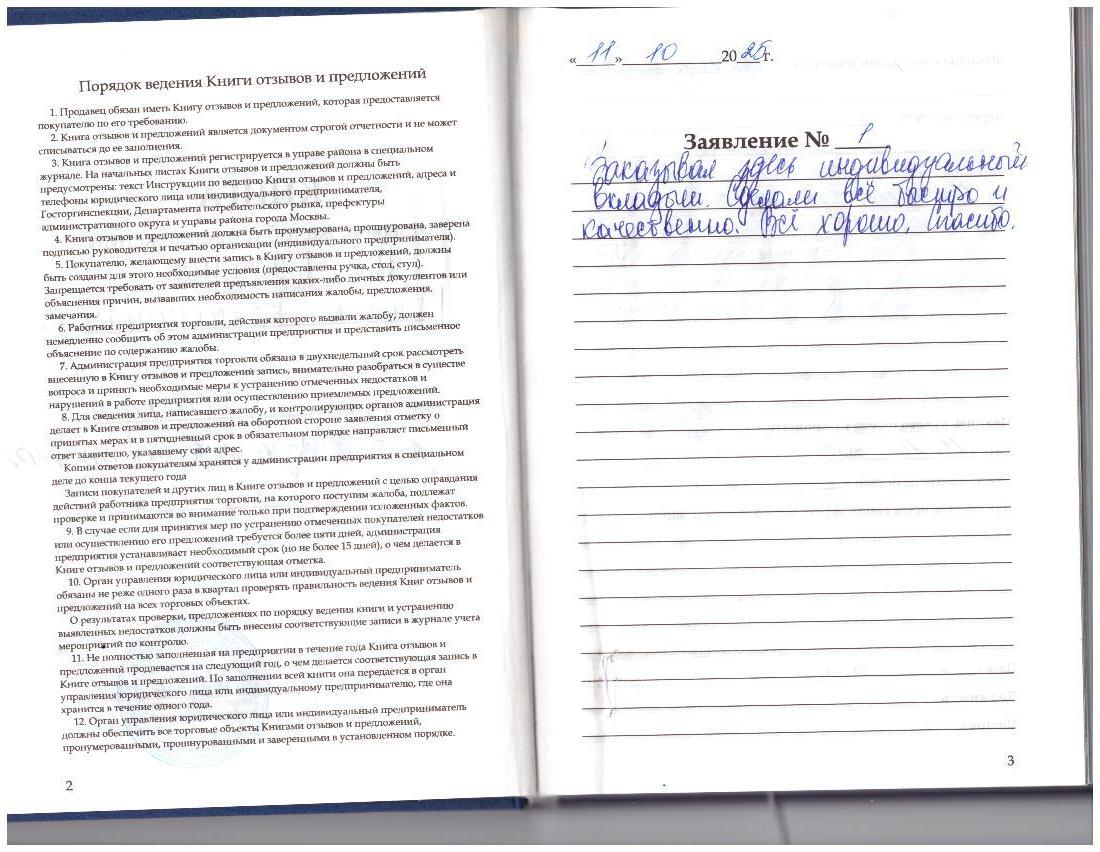 Порядок ведения Книги отзывов и предложений
1. Продавец обязан иметь Книгу отзывов и предложений, которая предоставляется
покупателю по его требованию.
2. Книга отзывов и предложений является документом строгой отчетности и не может
списываться до ее заполнения.
3. Книга отзывов и предложений регистрируется в управе района в специальном
журнале. На начальных листах Книги отзывов и предложений должны быть
предусмотрены: текст Инструкции по ведению Книги отзывов и предложений, адреса и
телефоны юридического лица или индивидуального предпринимателя,
Госторгинспекции, Департамента потребительского рынка, префектуры
административного округа и управы района города Москвы.
4. Книга отзывов и предложений должна быть пронумерована, прошнурована, заверена
подписью руководителя и печатью организации (индивидуального предпринимателя).
5. Покупателю, желающему внести запись в Книгу отзывов и предложений, должны
быть созданы для этого необходимые условия (предоставлены ручка, стол, стул).
Запрещается требовать от заявителей предъявления каких-либо личных докуллентов или
объяснения причин, вызвавших необходимость написания жалобы, предложения,
замечания.
6. Работник предприятия торговли, действия которого вызвали жалобу, должен
немедленно сообщить об этом администрации предприятия и представить письменное
объяснение по содержанию жалобы.
7. Администрация предприятия торговли обязана в двухнедельный срок рассмотреть
внесенную в Книгу отзывов и предложений запись, внимательно разобраться в существе
вопроса и принять необходимые меры к устранению отмеченных недостатков и
нарушений в работе предприятия или осуществлению приемлемых предложений.
8. Для сведения лица, написавшего жалобу, и контролирующих органов администрация
делает в Книге отзывов и предложений на оборотной стороне заявления отметку о
принятых мерах и в пятидневный срок в обязательном порядке направляет письменный
ответ заявителю, указавшему свой адрес.
Копии ответов покупателям хранятся у администрации предприятия в специальном
деле до конца текущего года
Записи покупателей и других лиц в Книге отзывов и предложений с целью оправдания
действий работника предприятия торговли, на которого поступим жалоба, подлежат
проверке и принимаются во внимание только при подтверждении изложенных фактов.
9. В случае если для принятия мер по устранению отмеченных покупателей недостатков
или осуществлению его предложений требуется более пяти дней, администрация
предприятия устанавливает необходимый срок (но не более 15 дней), о чем делается в
Книге отзывов и предложений соответствующая отметка.
10. Орган управления юридического лица или индивидуальный предприниматель
обязаны не реже одного раза в квартал проверять правильность ведения Книг отзывов и
предложений на всех торговых объектах.
О результатах проверки, предложениях по порядку ведения книги и устранению
выявленных недостатков должны быть внесены соответствующие записи в журнале учета
мероприятий по контролю.
11. Не полностью заполненная на предприятии в течение года Книга отзывов и
предложений продлевается на следующий год, о чем делается соответствующая запись в
Книге отзывов и предложений. По заполнении всей книги она передается в орган
управления юридического лица или индивидуальному предпринимателю, где она
хранится в течение одного года.
12. Орган управления юридического лица или индивидуальный предприниматель
должны обеспечить все торговые объекты Книгами отзывов и предложений,
пронумерованными, прошнурованными и заверенными в установленном порядке.
2
«11» 10 2025 г.
Заявление № 1
Заказывал здесь индивидуальный
вкладыш. Сделали всё быстро и
качественно. Всё хорошо. Спасибо.
3